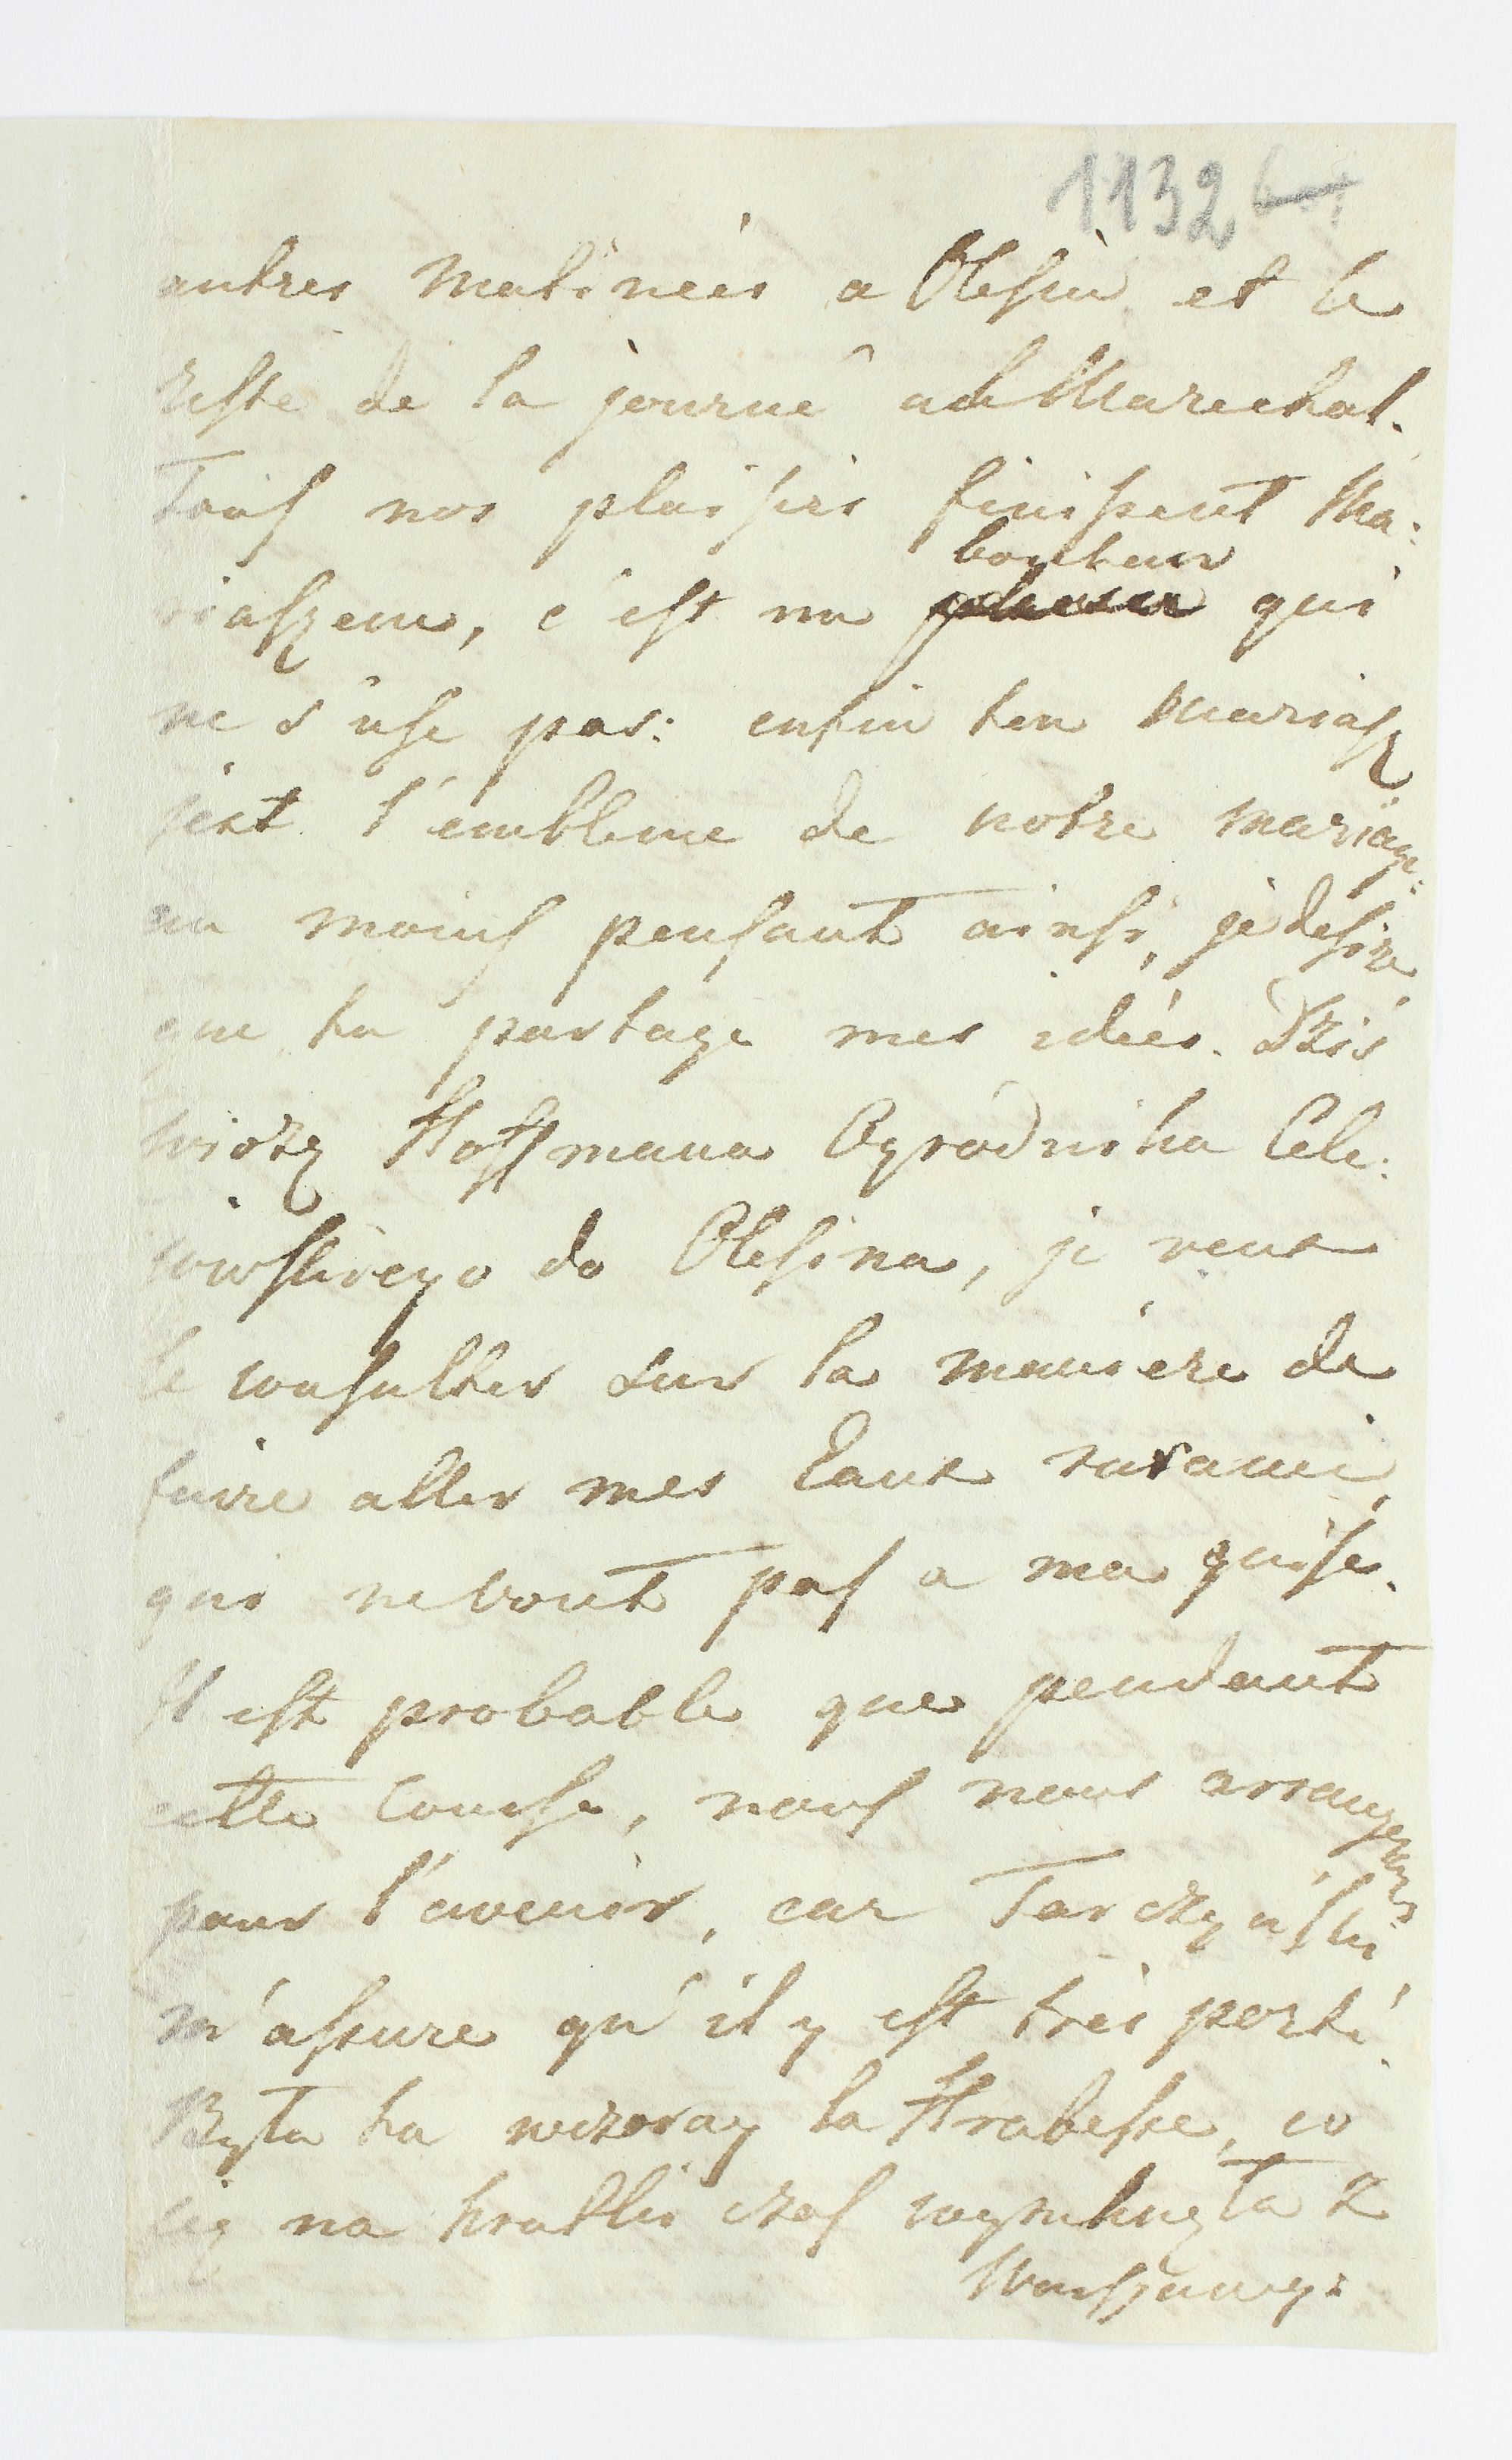 1132
autres Matinées a Olesin et le
reste de la journé au Marechat.
Tous nos plaisirs finissent Ma:
riaszem, c'est un bonheur qui
ne s'use pas: enfin ten Mariasz
jest l'embleme de notre mariage:
au moins pensant ainsi, je desire
que tu partage mes idées. Dziś
wiozę Hoffmana Ogródnika Cele:
jowskiego do Olesina, je veux
le consulter sur la maniere de
faire aller mes Eaux
qui ne vont pas a ma guise.
Il est probable que pendant
cette Course, nous nous arrangerons
pour l'avenir, car Tarczyński
m'assure qu'il y est très porté.
Była tu wczoray la Hrabesse, co
się na krótki czas wymknęła z
Warszawy: